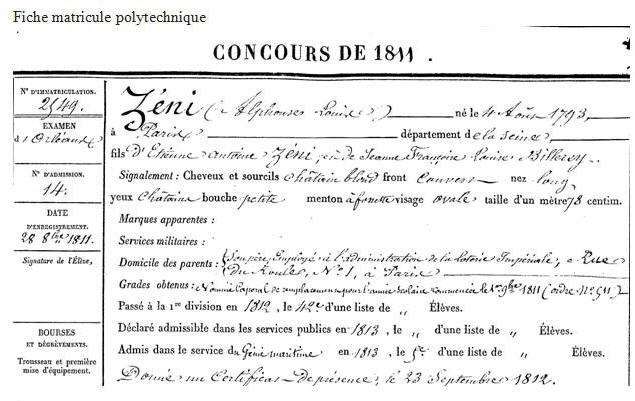 Fiche matricule polytechnique
CONCOURS DE 1811.
N° D'IMMATRICULATION.
2549.
EXAMEN
à Orléans
N° D'ADMISSION.
14.
DATE
D'ENREGISTREMENT.
28 8bre 1811.
Signature de l'Élève,
BOURSES
ET DÉGRÈVEMENTS.
Trousseau et première
mise d'équipement.
Zéni (Alphonse Louis) né le 4 Août 1793
à Paris département de la Seine
fils d'Etienne Antoine Zéni, et de Jeanne Françoise Louise Billeroy.
Signalement : Cheveux et sourcils châtain blond front couvert nez long
yeux châtains bouche petite menton à fossette visage ovale taille d'un mètre 78 centim.
Marques apparentes :
Services militaires :
Domicile des parents : (Son père Employé à l'administration de la loterie Impériale, Rue
du Roule, N° 1, à Paris
Grades obtenus : Nommé Caporal de remplacement pour l'année scolaire commencée le 1er 9bre 1811 (ordre N° 511)
Passé à la 1re division en 1812, le 42e d'une liste de „ Élèves.
Déclaré admissible dans les services publics en 1813, le „ d'une liste de „ Élèves.
Admis dans le service du Génie maritime en 1813, le 5e d'une liste de „ Élèves.
Donné un Certificat de présence, le 23 Septembre 1812.